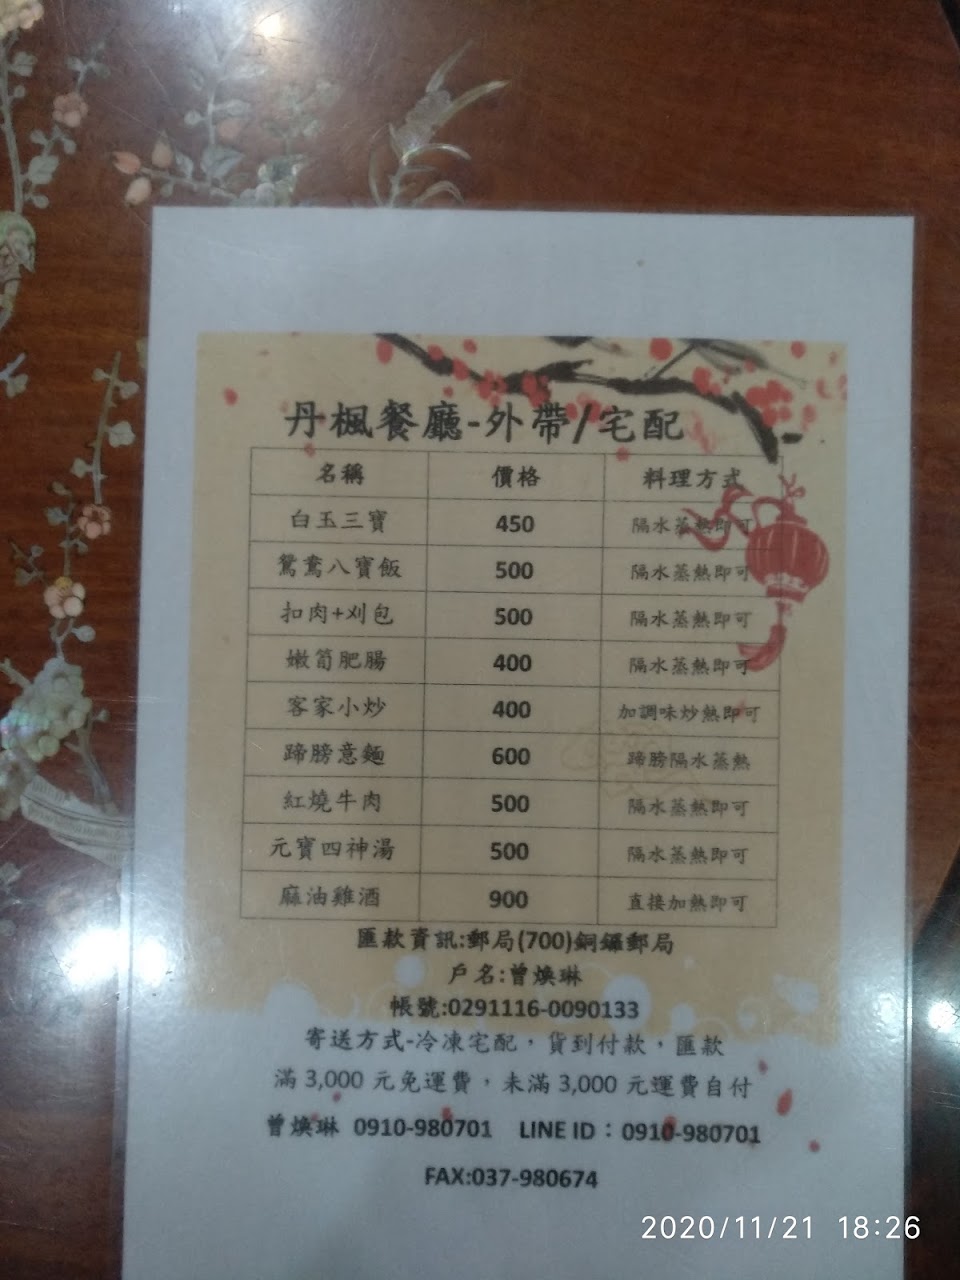 丹楓餐廳-外帶/宅配
名稱 價格 料理方式
白玉三寶 450 隔水蒸熱即可
鴛鴦八寶飯 500 隔水蒸熱即可
扣肉+刈包 500 隔水蒸熱即可
嫩筍肥腸 400 隔水蒸熱即可
客家小炒 400 加調味炒熱即可
蹄膀意麵 600 蹄膀隔水蒸熱
紅燒牛肉 500 隔水蒸熱即可
元寶四神湯 500 隔水蒸熱即可
麻油雞酒 900 直接加熱即可
匯款資訊:郵局(700)銅鑼郵局
戶名:曾煥琳
帳號:0291116-0090133
寄送方式-冷凍宅配，貨到付款，匯款
滿 3,000 元免運費，未滿 3,000 元運費自付
曾煥琳 0910-980701 LINE ID：0910-980701
FAX:037-980674
2020/11/21 18:26